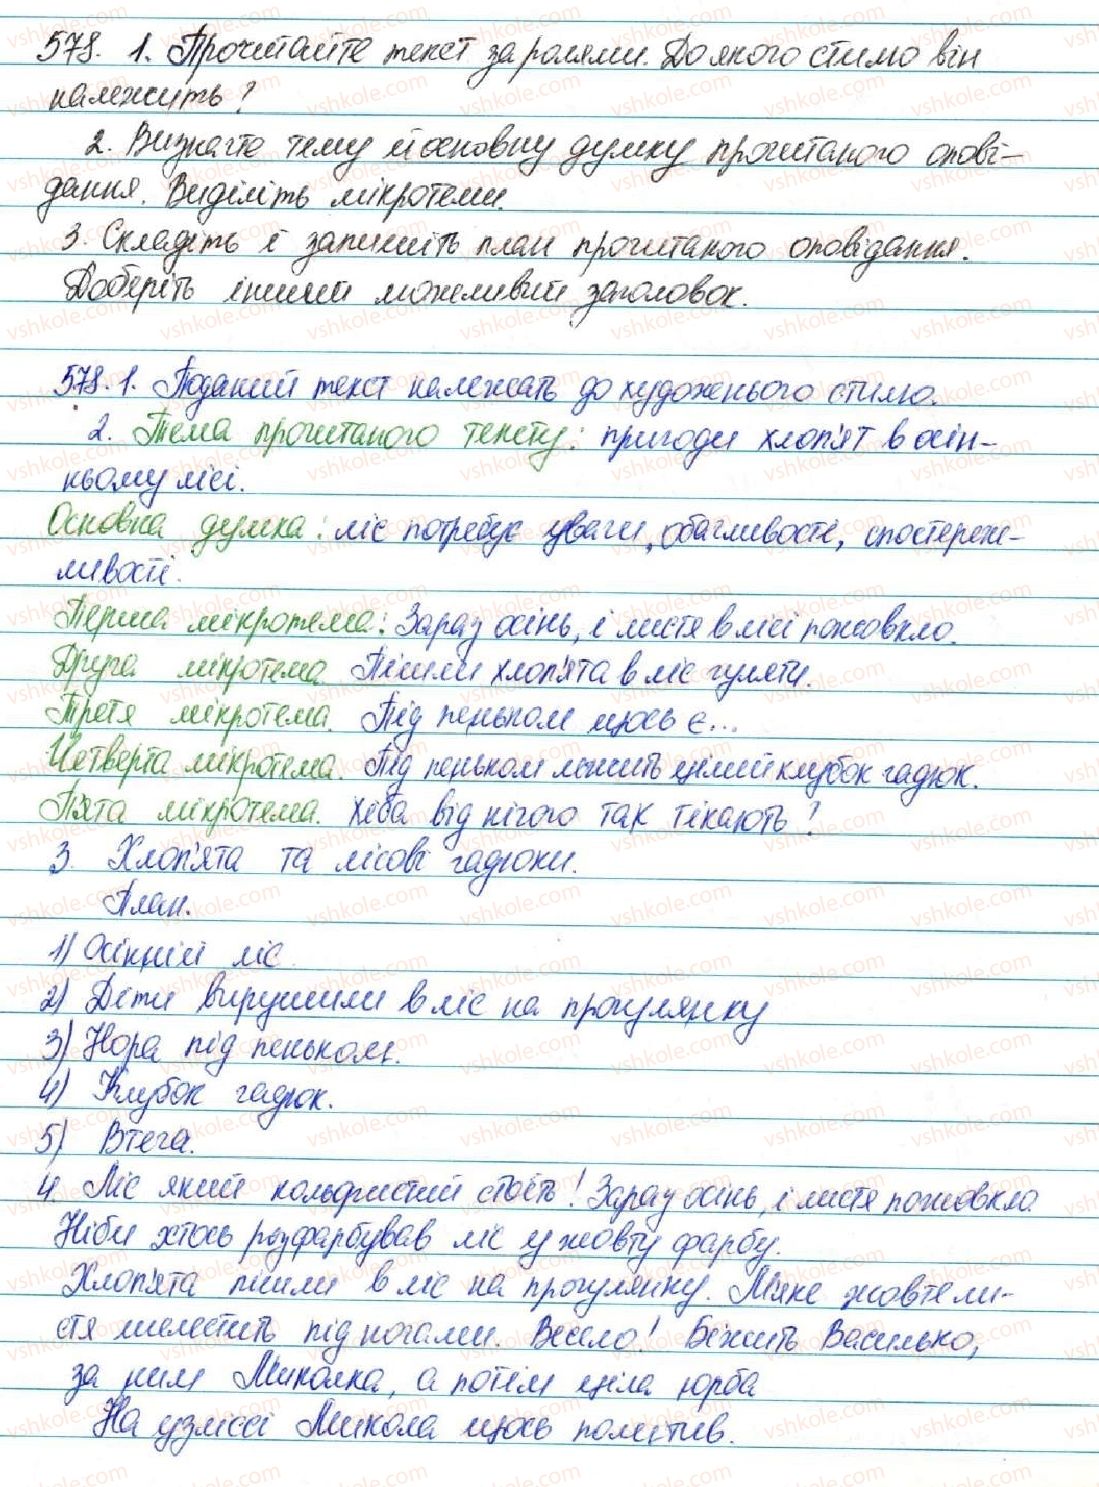 578. 1. Прочитайте текст за ролями. До якого стилю він
належить?
2. Визначте тему й основну думку прочитаного опові-
дання. Виділіть мікротеми.
3. Складіть і запишіть план прочитаного оповідання.
Доберіть інший можливий заголовок.
578. 1. Поданий текст належать до художнього стилю.
2. Тема прочитаного тексту: пригоди хлоп'ят в осін-
ньому лісі.
Основна думка: ліс потребує уваги, обачливості, спостереж-
ливості.
Перша мікротема: Зараз осінь, і листя в лісі пожовкло.
Друга мікротема. Пішли хлоп'ята в ліс гуляти.
Третя мікротема. Під пеньком щось є...
Четверта мікротема. Під пеньком лежить цілий клубок гадюк.
П'ята мікротема. Хіба від нічого так тікають?
3. Хлоп'ята та лісові гадюки.
План.
1) Осінній ліс
2) Діти вирушили в ліс на прогулянку
3) Нора під пеньком.
4) Клубок гадюк.
5) Втеча.
4. Ліс який кольористий стоїть! Зараз осінь, і листя пожовкло
Ніби хтось розфарбував ліс у жовту фарбу.
Хлоп'ята пішли в ліс на прогулянку. М'яке жовте ли-
стя шелестить під ногами. Весело! Біжить Василько,
за ним Миколка, а потім ціла юрба
На узліссі Микола щось помітив.